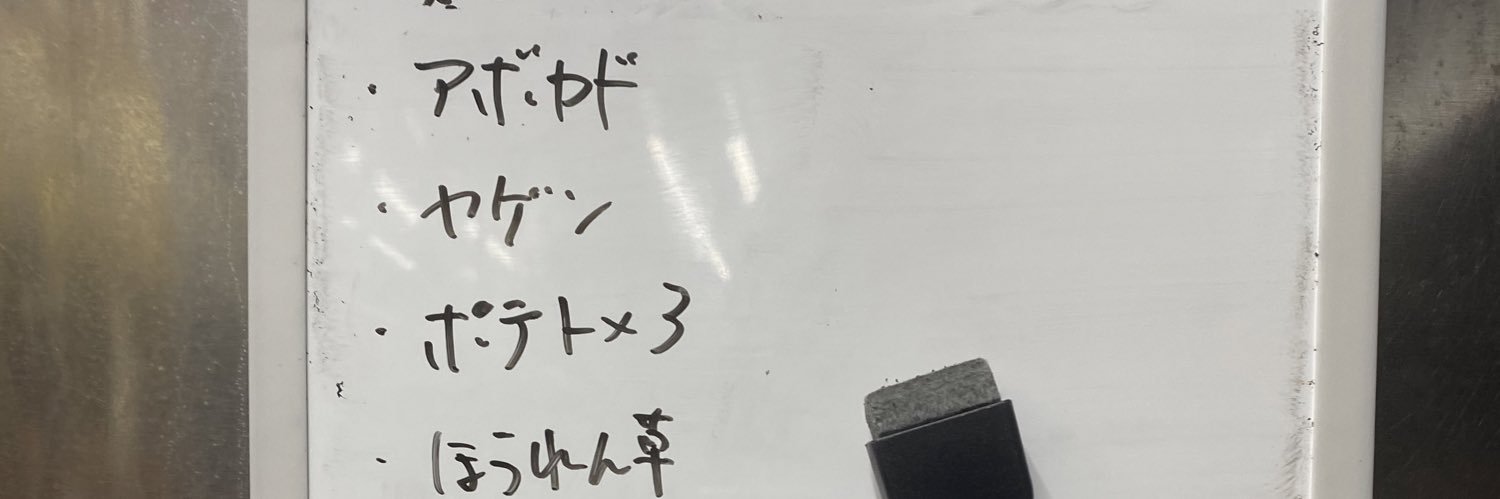 ・アボカド
・ヤゲン
・ポテト×3
・ほうれん草